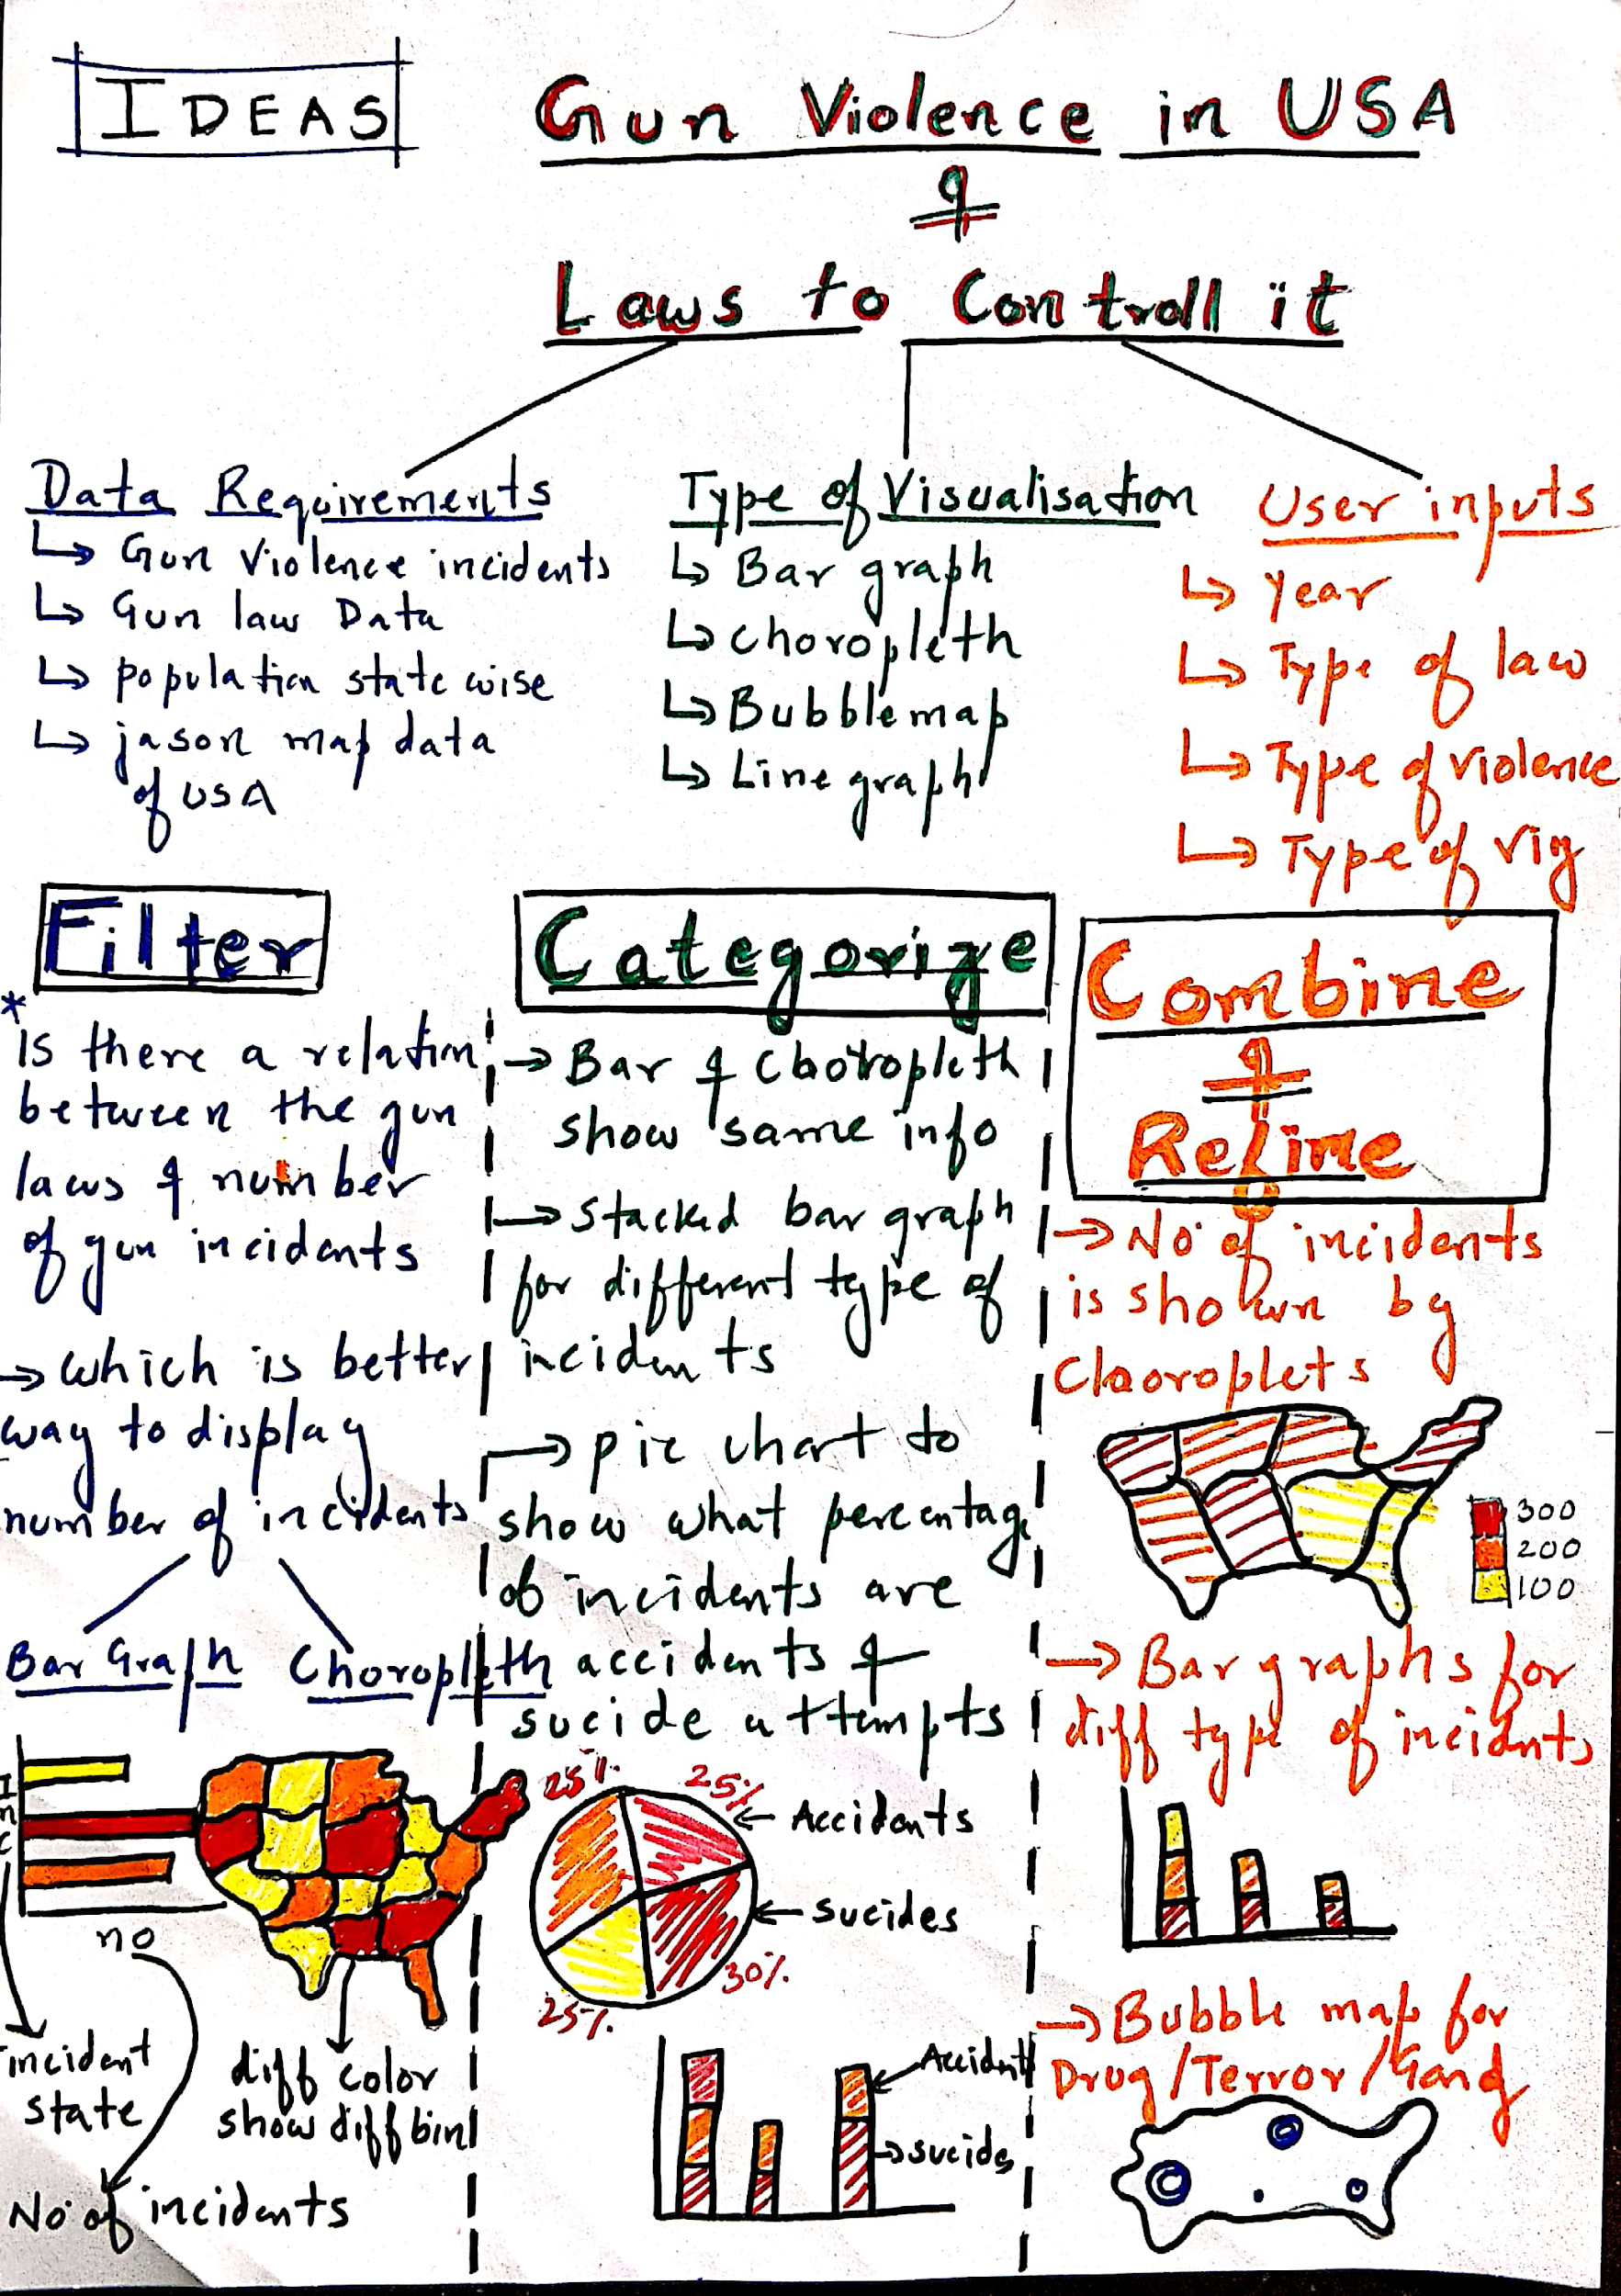 IDEAS
Gun Violence in USA
&
Laws to Controll it
Data Requirements
↳ Gun Violence incidents
↳ Gun law Data
↳ population state wise
↳ jason map data
of USA
Type of Visualisation
↳ Bar graph
↳ choropleth
↳ Bubblemap
↳ Line graph
User inputs
↳ year
↳ Type of law
↳ Type of violence
↳ Type of viz
Filter
* Is there a relation
between the gun
laws & number
of gun incidents
→ which is better
way to display
number of incidents
Bar Graph
Choropleth
Inc
no
incident
state
No of incidents
diff color
show diff bin
Categorize
→ Bar & Choropleth
show same info
→ stacked bar graph
for different type of
incidents
→ pie chart to
show what percentage
of incidents are
accidents &
sucide attempts
25%
25%
← Accidents
← sucides
30%
25%
Accident
→ sucide
Combine
&
Refine
→ No of incidents
is shown by
Chaoroplets
300
200
100
→ Bar graphs for
diff type of incidents
→ Bubble map for
Drug/Terror/Gang